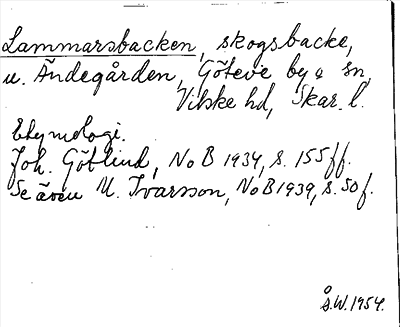 Lammarsbacken, skogsbacke,
u. Ändegården, Göteve by o sn,
Vilske hd, Skar. l.
Etymologi.
Joh. Götlind, NoB 1934, s. 155 ff.
Se även U. Ivarsson, NoB 1939, s. 50 f.
Å.W. 1954.